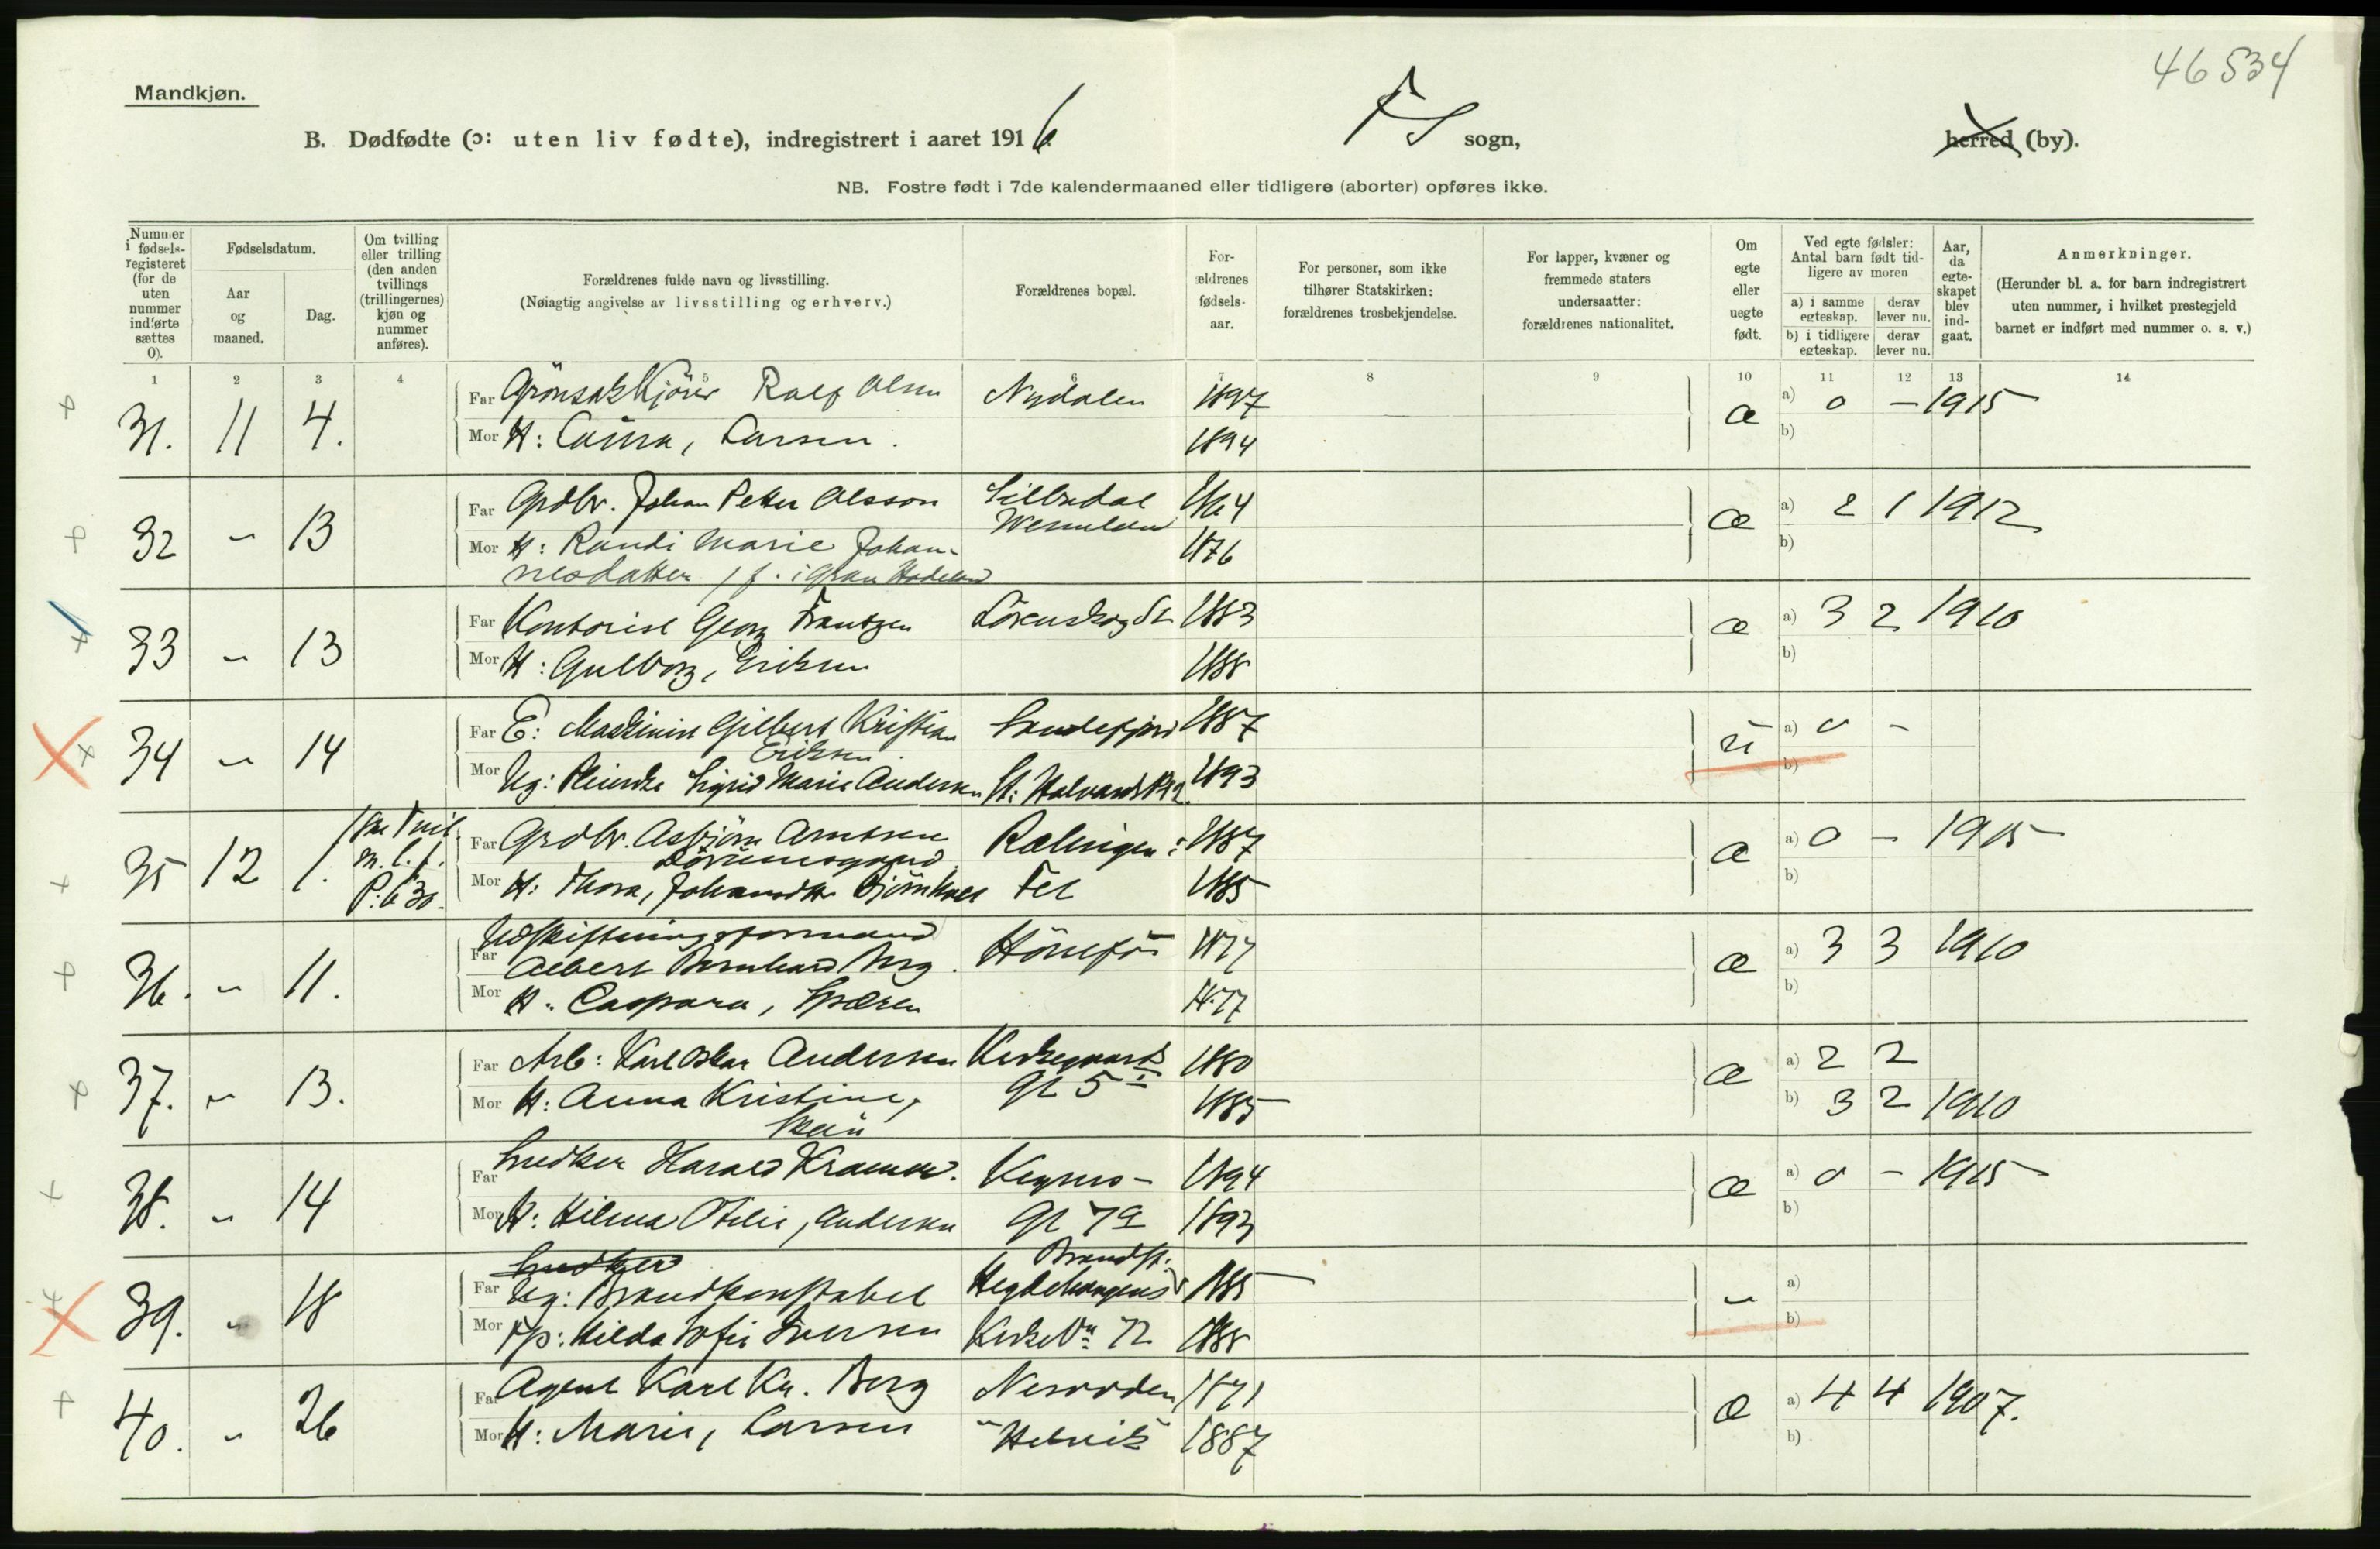 46534
Mandkjøn.
B. Dødfødte (ɔ: uten liv fødte), indregistrert i aaret 1916
FS sogn,
herred (by).
NB. Fostre født i 7de kalendermaaned eller tidligere (aborter) opføres ikke.
Nummer i fødsels-registeret (for de uten nummer indførte sættes 0).
Fødselsdatum.
Aar og maaned.
Dag.
Om tvilling eller trilling (den anden tvillings (trillingernes) kjøn og nummer anføres).
Forældrenes fulde navn og livsstilling.
(Nøiagtig angivelse av livsstilling og erhverv.)
Forældrenes bopæl.
For-ældrenes fødsels-aar.
For personer, som ikke tilhører Statskirken: forældrenes trosbekjendelse.
For lapper, kvæner og fremmede staters undersaatter: forældrenes nationalitet.
Om egte eller uegte født.
Ved egte fødsler: Antal barn født tid-ligere av moren
a) i samme egteskap. derav lever nu.
b) i tidligere egteskap. derav lever nu.
Aar, da egte-skapet blev ind-gaat.
Anmerkninger.
(Herunder bl. a. for barn indregistrert uten nummer, i hvilket prestegjeld barnet er indført med nummer o. s. v.)
1 2 3 4 5 6 7 8 9 10 11 12 13 14
31. 11 4. Far Rolf Olsen Nydalen 1897 æ a) 0 – 1915
Mor H: Larsen. 1894 b)
32 " 13 Far Grdbr. Johan Peter Olsson 1864 æ a) 2 1 1912
Mor H: Randi Marie Johan- 1876 b)
nesdatter / f. i Gran Hadeland
33 " 13 Far Kontorist Georg Frantzen Lörenskog St 1883 æ a) 3 2 1910
Mor H: Gulborg, Eriksen 1888 b)
34 " 14 Far E: Maskinist Gilbert Kristian Sandefjord 1887 u a) 0 –
Eriksen
Mor Ug: Sigrid Marie Andersen St: Halvards Pl 2. 1893 b)
35 12 1. m. l. f. P. 630. Far Grdbr. Asbjörn Arntsen Rælingen i 1887 æ a) 0 – 1915
Mor H: Thora, Fet 1885 b)
Utskiftningsformand
36. " 11. Far Albert Bernhard Berg. Hönefos 1877 æ a) 3 3 1910
Mor H: Caspara, 1877 b)
37. " 13. Far Arb: Karl Oskar Andersen Kirkegaards 1880 æ a) 2 2
Mor H: Anna Kristine, gt 5 I 1885 b) 3 2 1910
38. " 14 Far Snedker Harald Kramer. Keysers- 1894 æ a) 0 – 1915
Mor H: Hilma Otilie, Andersen gt 7a 1893 b)
Snedker Brandst.
39. " 18 Far Ug: Brandkonstabel Hegdehaugens 1885 " a)
Mor Hilda Sofie Iversen Kirkevn 72 1888 b)
40. " 26 Far Agent Karl Kr. Berg Nesodden 1871 æ a) 4 4 1907.
Mor H: Marie, Larsen "Helvik" 1887 b)